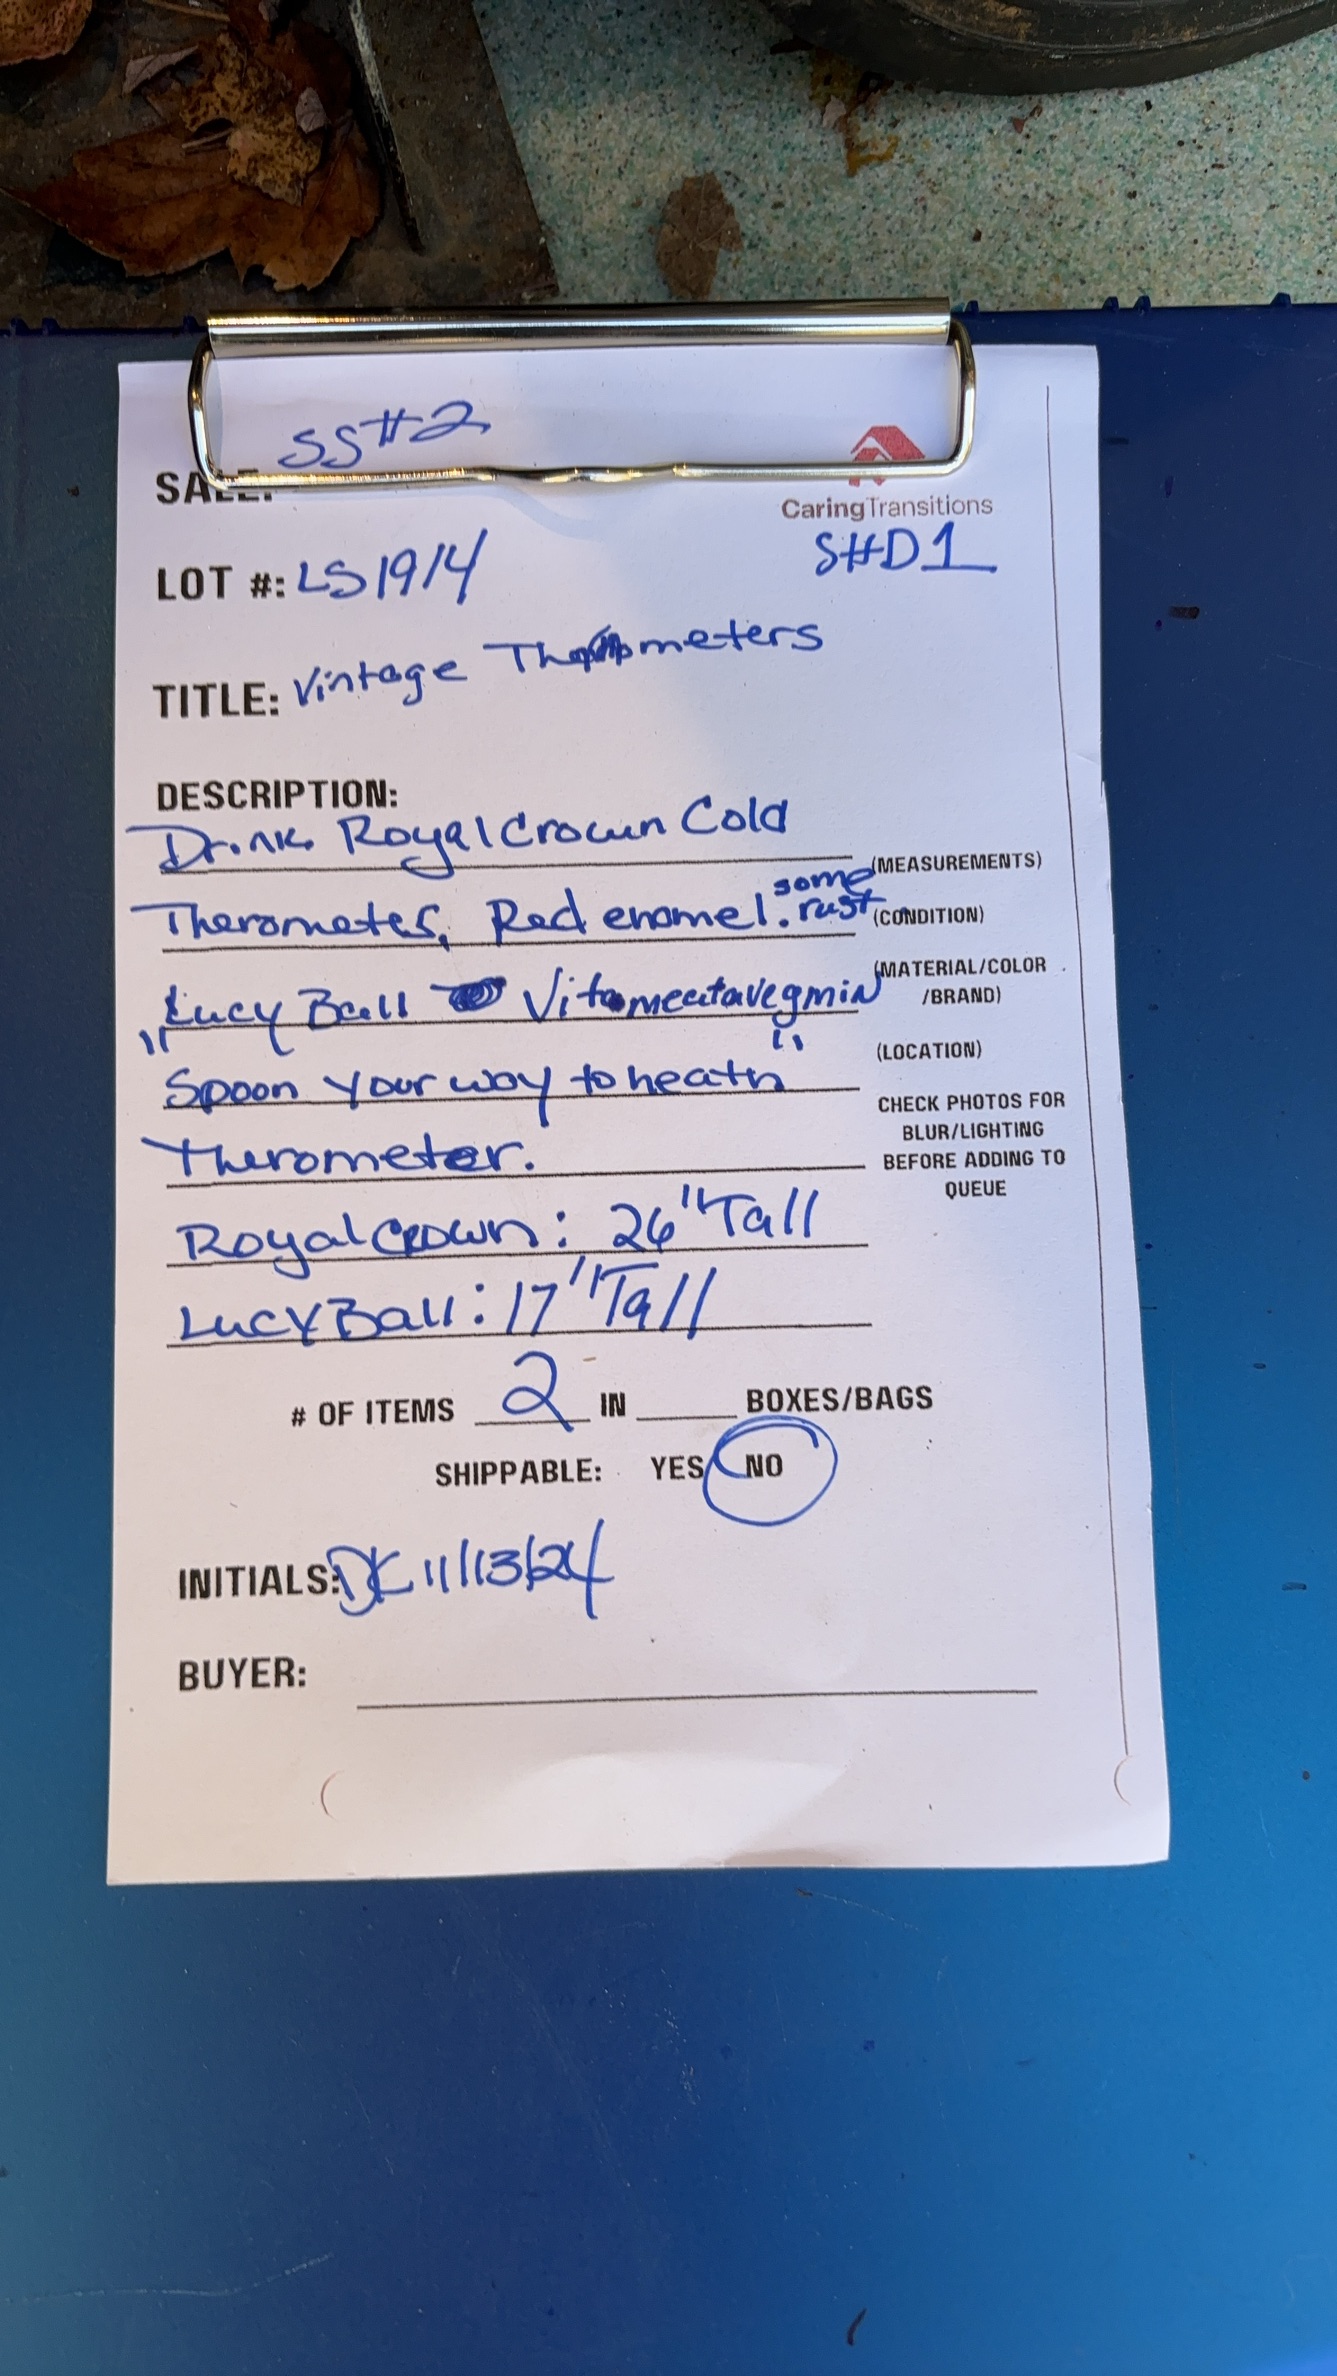 SS#2
SALE:
CaringTransitions
S#D1
LOT #: LS1914
TITLE: Vintage Thermometers
DESCRIPTION:
Drink Royal Crown Cold
(MEASUREMENTS)
Therometer, Red enamel. some rust
(CONDITION)
Lucy Ball Vitameatavegmin
(MATERIAL/COLOR
/BRAND)
(LOCATION)
"Spoon your way to heath"
CHECK PHOTOS FOR
BLUR/LIGHTING
BEFORE ADDING TO
QUEUE
Therometer.
Royal Crown: 26" Tall
Lucy Ball: 17" Tall
# OF ITEMS 2 IN BOXES/BAGS
SHIPPABLE: YES NO
INITIALS: DK 11/13/24
BUYER: